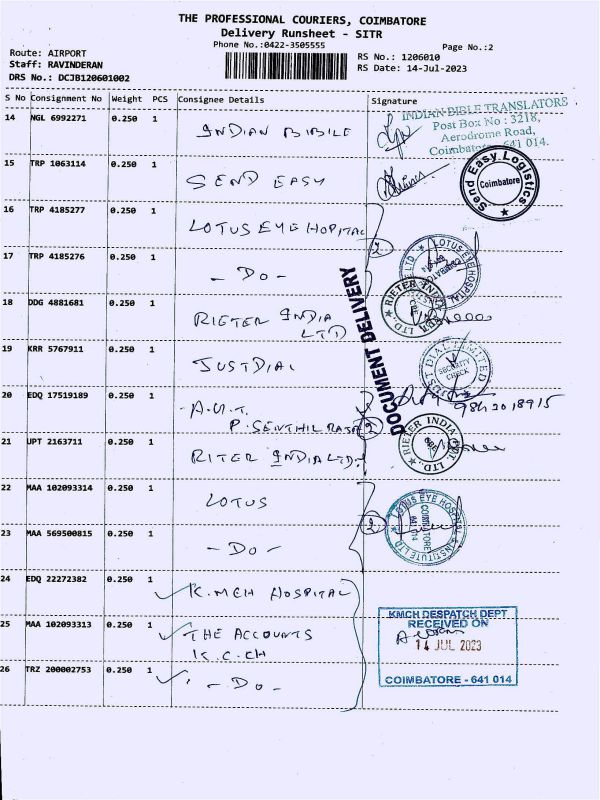 THE PROFESSIONAL COURIERS, COIMBATORE
Delivery Runsheet - SITR
Phone No.:0422-3505555
Page No.:2
Route: AIRPORT
Staff: RAVINDERAN
DRS No.: DCJB120601002
RS No.: 1206010
RS Date: 14-Jul-2023
S No Consignment No Weight PCS Consignee Details Signature
14 NGL 6992271 0.250 1 INDIAN BIBILE
INDIAN BIBLE TRANSLATORS
Post Box No : 3218,
Aerodrome Road,
Coimbatore - 641 014.
15 TRP 1063114 0.250 1 SEND EASY
Send Easy Logistics
Coimbatore
16 TRP 4185277 0.250 1 LOTUS EYE HOPITAL
2
17 TRP 4185276 0.250 1 - DO -
LOTUS EYE HOSPITAL
DOCUMENT DELIVERY
18 DDG 4881681 0.250 1 RIETER INDIA
LTD
RIETER INDIA PVT. LTD.
CBE
19 KRR 5767911 0.250 1 JUSTDIAL
JUST DIAL LIMITED
SECURITY
CHECK
20 EDQ 17519189 0.250 1
P. SENTHIL RAJA
2
21 UPT 2163711 0.250 1 RITER INDIA LTD.
RIETER INDIA PVT. LTD.
CBE
22 MAA 102093314 0.250 1 LOTUS
2
LOTUS EYE HOSPITAL & INSTITUTE LTD
COIMBATORE
641 014
23 MAA 569500815 0.250 1 - DO -
24 EDQ 22272382 0.250 1 K.MCH HOSPITAL
25 MAA 102093313 0.250 1 THE ACCOUNTS
K.C.CH
KMCH DESPATCH DEPT
RECEIVED ON
14 JUL 2023
COIMBATORE - 641 014
26 TRZ 200002753 0.250 1 - DO -